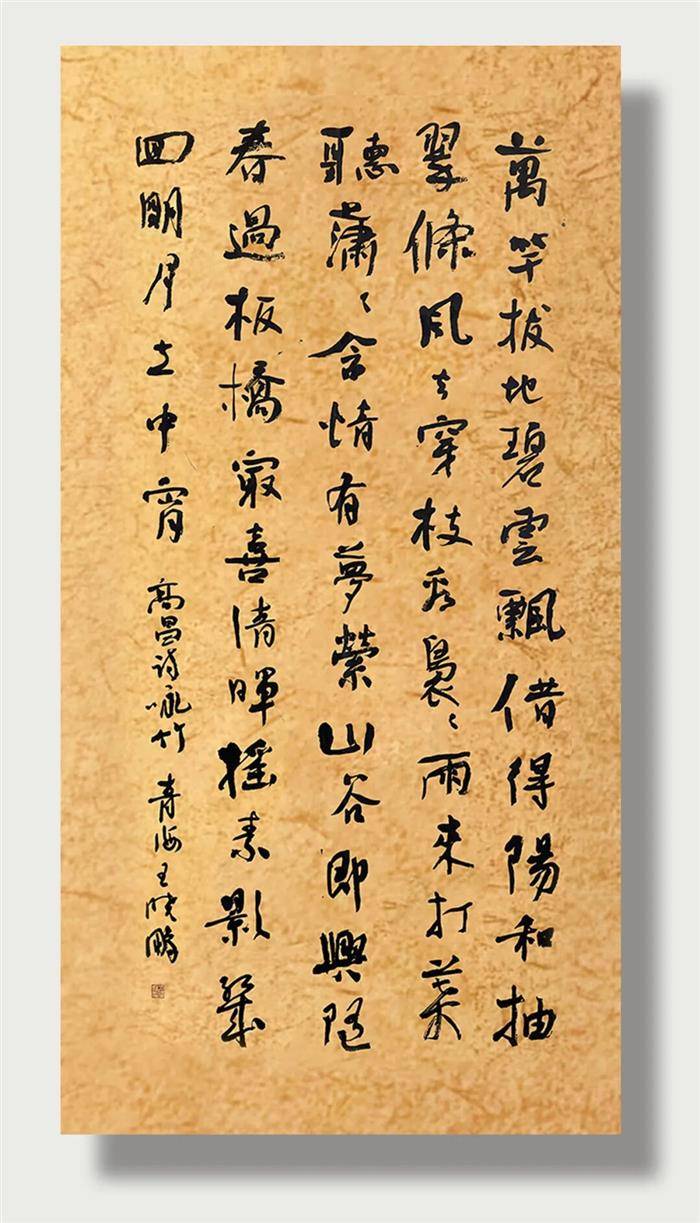 萬竿拔地碧雲飄借得陽和抽
翠條風去穿枝看裊〻雨來打葉
聽瀟〻含情有夢縈山谷即興隨
春過板橋㝡喜清暉搖素影幾
回明月立中宵 高昌詩詠竹 青海王晓鵬